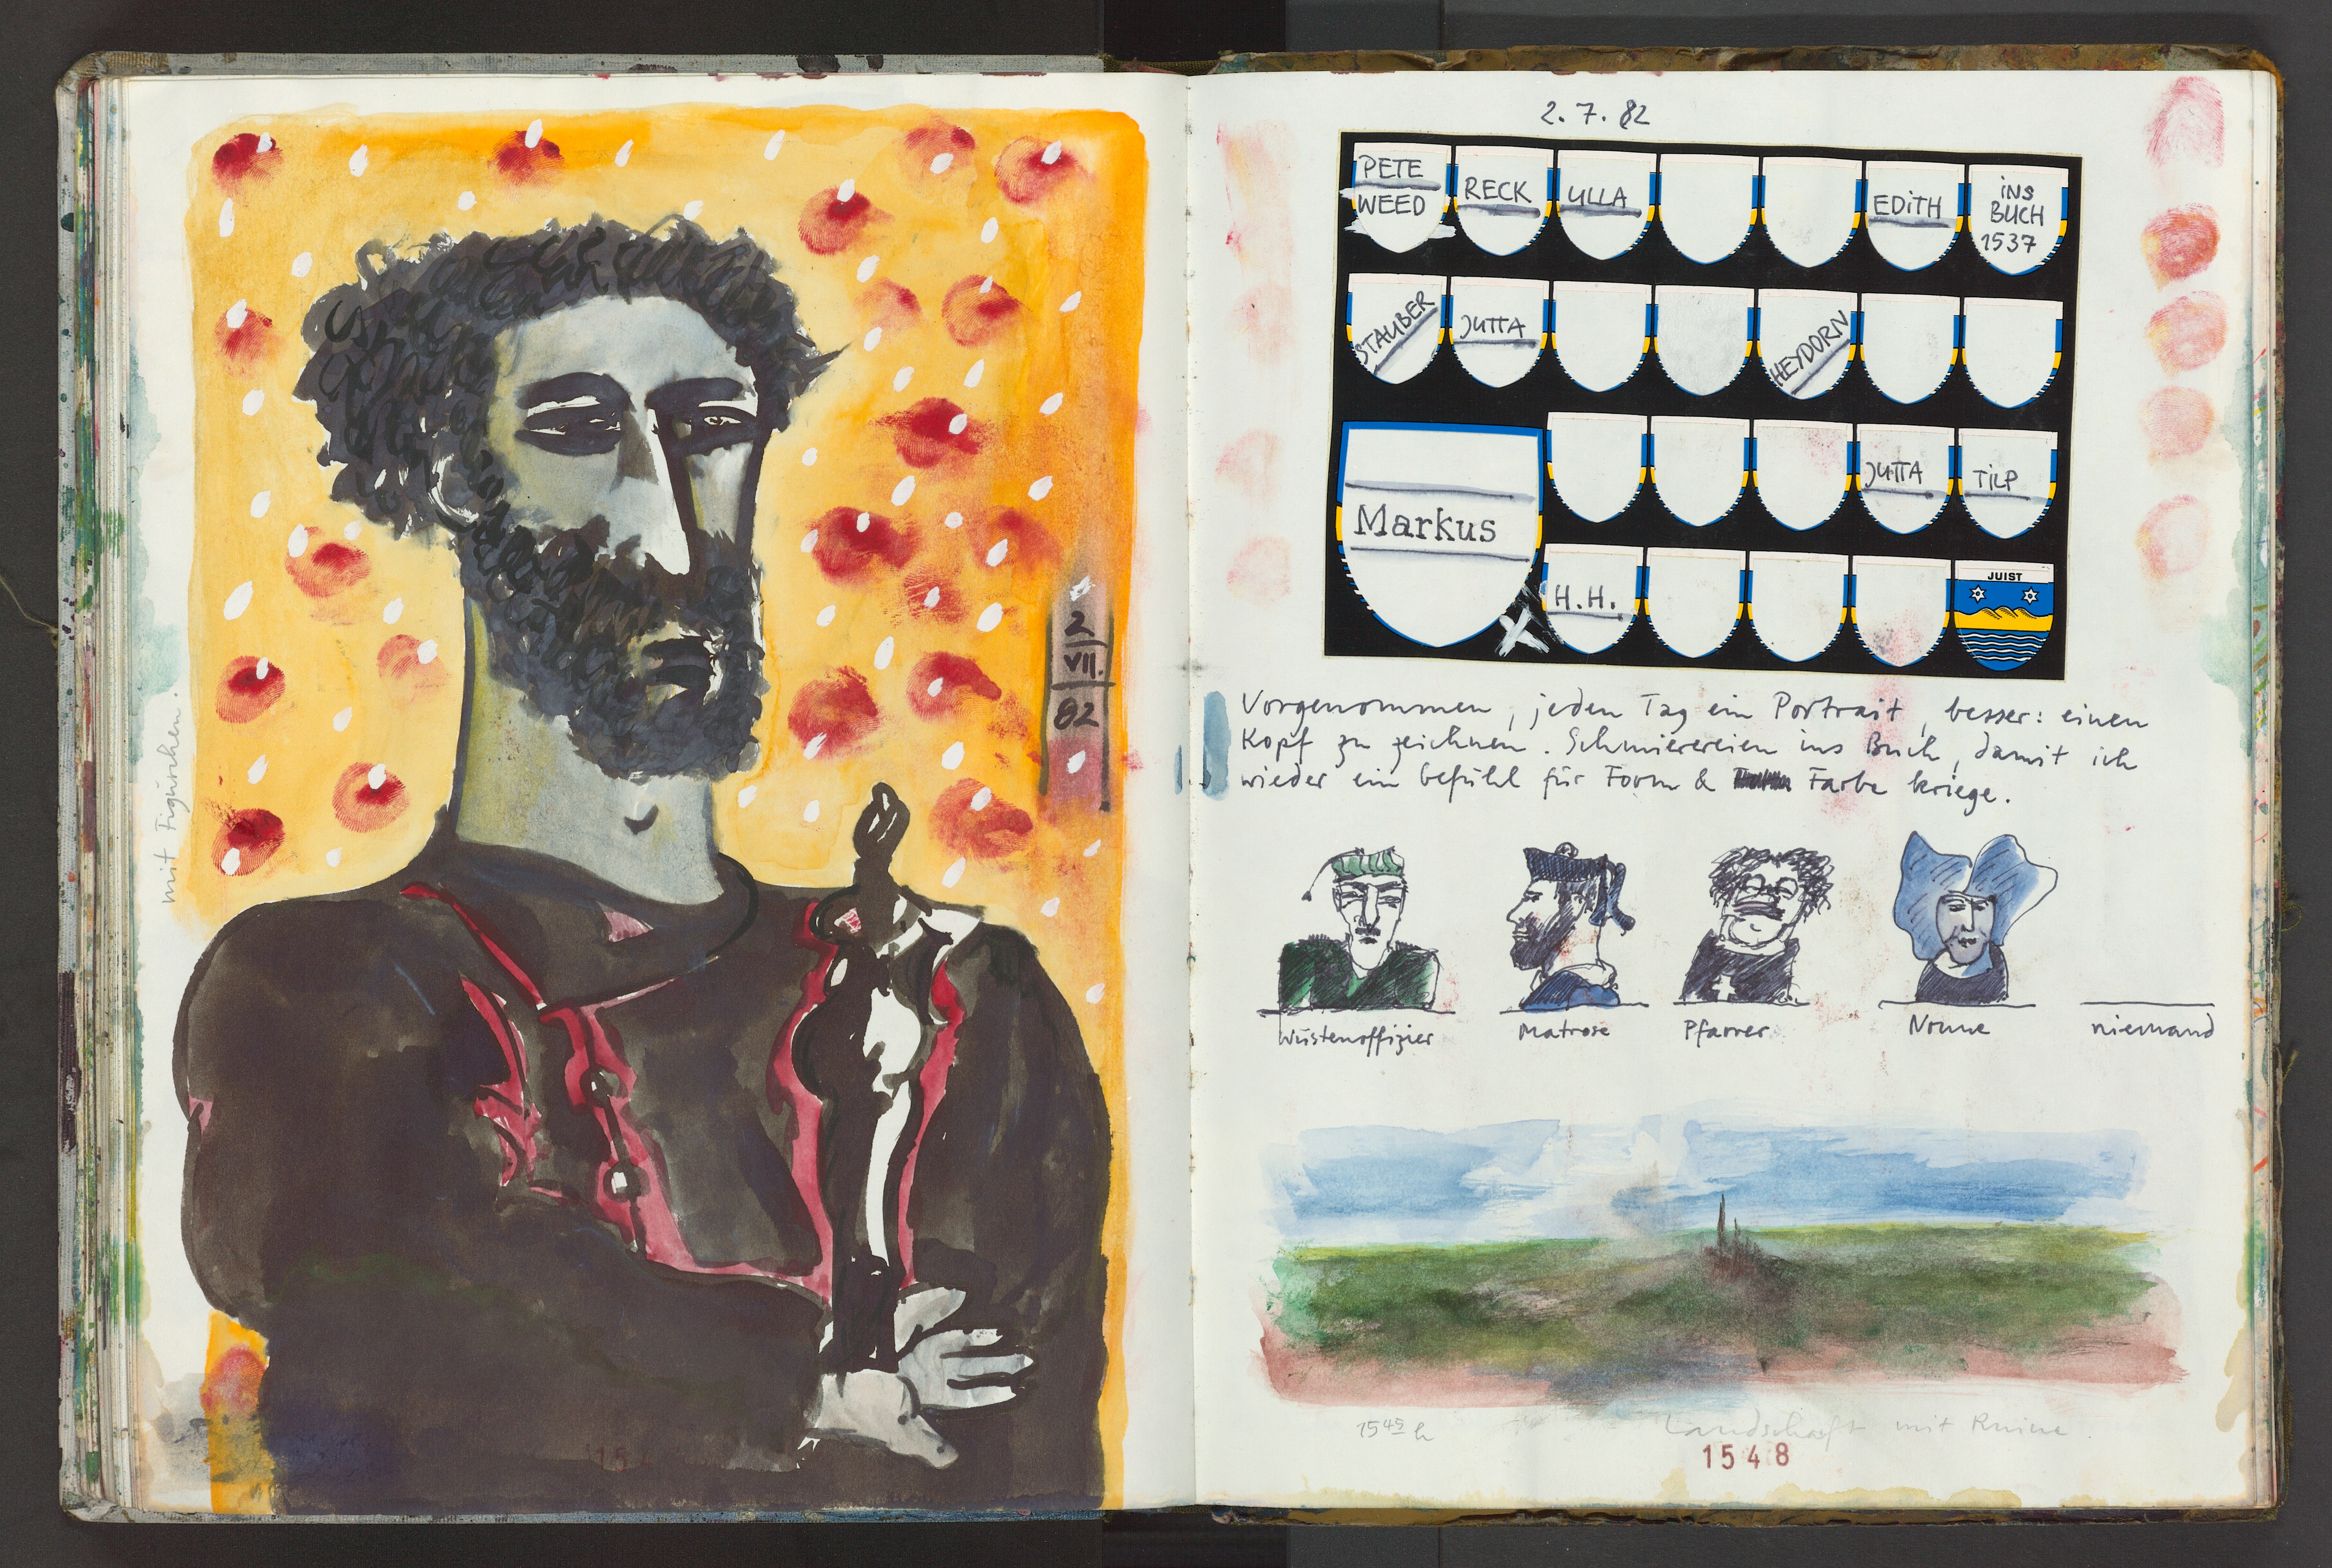 mit Figürchen.
2
VII.
82
2. 7. 82
PETE WEED
RECK
ULLA
EDiTH
iNS BUCH 1537
STAUBER
JUTTA
HEYDORN
Markus
JUTTA
TiLP
H.H.
JUIST
Vorgenommen, jeden Tag ein Portrait, besser: einen
Kopf zu zeichnen. Schmierereien ins Buch, damit ich
wieder ein Gefühl für Form & Farbe kriege.
Wüstenoffizier Matrose Pfarrer Nonne niemand
15 45 h Landschaft mit Ruine.
1548